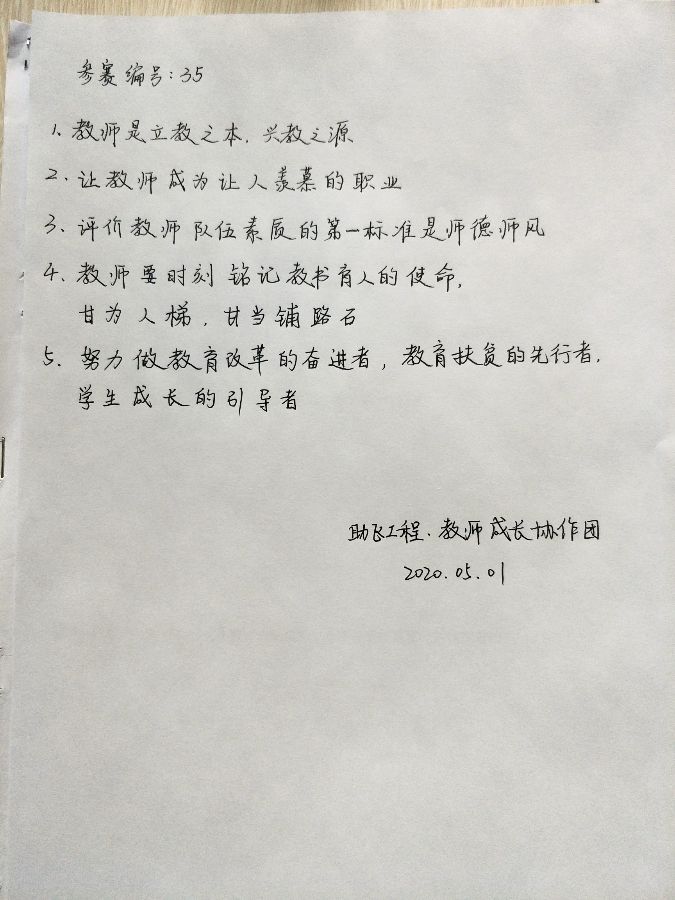 参赛编号:35
1、教师是立教之本,兴教之源
2、让教师成为让人羡慕的职业
3、评价教师队伍素质的第一标准是师德师风
4、教师要时刻铭记教书育人的使命,
甘为人梯,甘当铺路石
5、努力做教育改革的奋进者,教育扶贫的先行者,
学生成长的引导者
助飞工程·教师成长协作团
2020.05.01